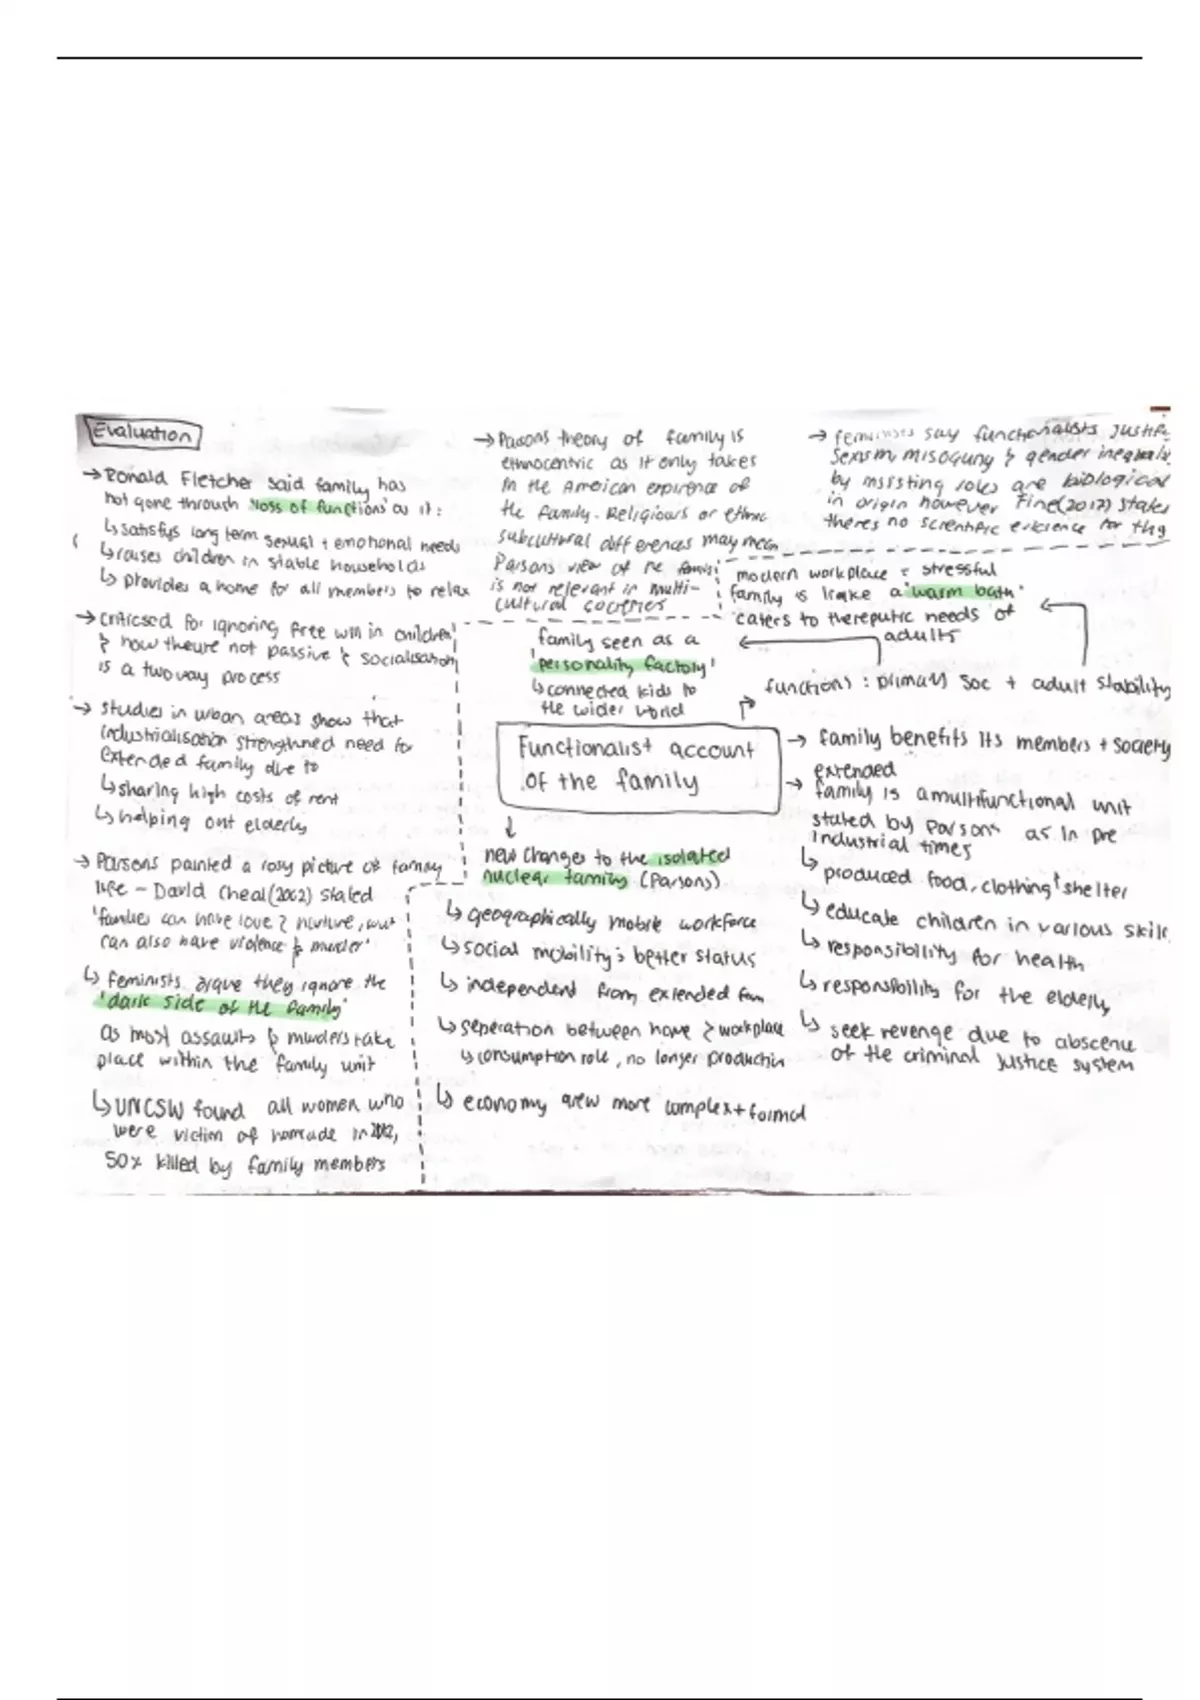 Evaluation
→ Ronald Fletcher said family has
not gone through 'loss of functions' as it:
↳ satisfys long term sexual + emotional needs
↳ raises children in stable households
↳ provides a home for all members to relax
→ criticsed for ignoring free will in children
& how theure not passive & socialisation
is a two way process
→ studies in urban areas show that
industrialisation strengthned need for
extended family due to
↳ sharing high costs of rent
↳ helping out elderly
→ Parsons painted a rosy picture of family
life - David Cheal (2002) stated
'families can have love & nurture, but
can also have violence & murder'
↳ feminists argue they ignore the
'dark side of the family'
as most assaults & murders take
place within the family unit
↳ UNCSW found all women who
were victim of homicide in 2012,
50% killed by family members
→ Parsons theory of family is
ethnocentric as it only takes
in the American experience of
the family. Religious or ethnic
subcultural differences may mean
Parsons view of the family
is not relevant in multi-
cultural societies
→ feminists say functionalists justify
sexism, misogyny & gender inequality
by insisting roles are biological
in origin however Fine (2017) states
theres no scientific evidence for this
modern workplace = stressful
family is like a 'warm bath'
caters to thereputic needs of
adults
family seen as a
'personality factory'
↳ connected kids to
the wider world
functions : primary soc + adult stability
Functionalist account
of the family
→ family benefits its members + society
→ extended
family is a multifunctional unit
stated by Parsons as in pre
industrial times
↳ produced food, clothing + shelter
↳ educate children in various skills
↳ responsibility for health
↳ responsibility for the elderly
↳ seek revenge due to abscence
of the criminal justice system
new changes to the isolated
nuclear family (Parsons)
↳ geographically mobile workforce
↳ social mobility : better status
↳ independent from extended fam
↳ seperation between home & workplace
↳ consumption role, no longer production
↳ economy grew more complex + formal